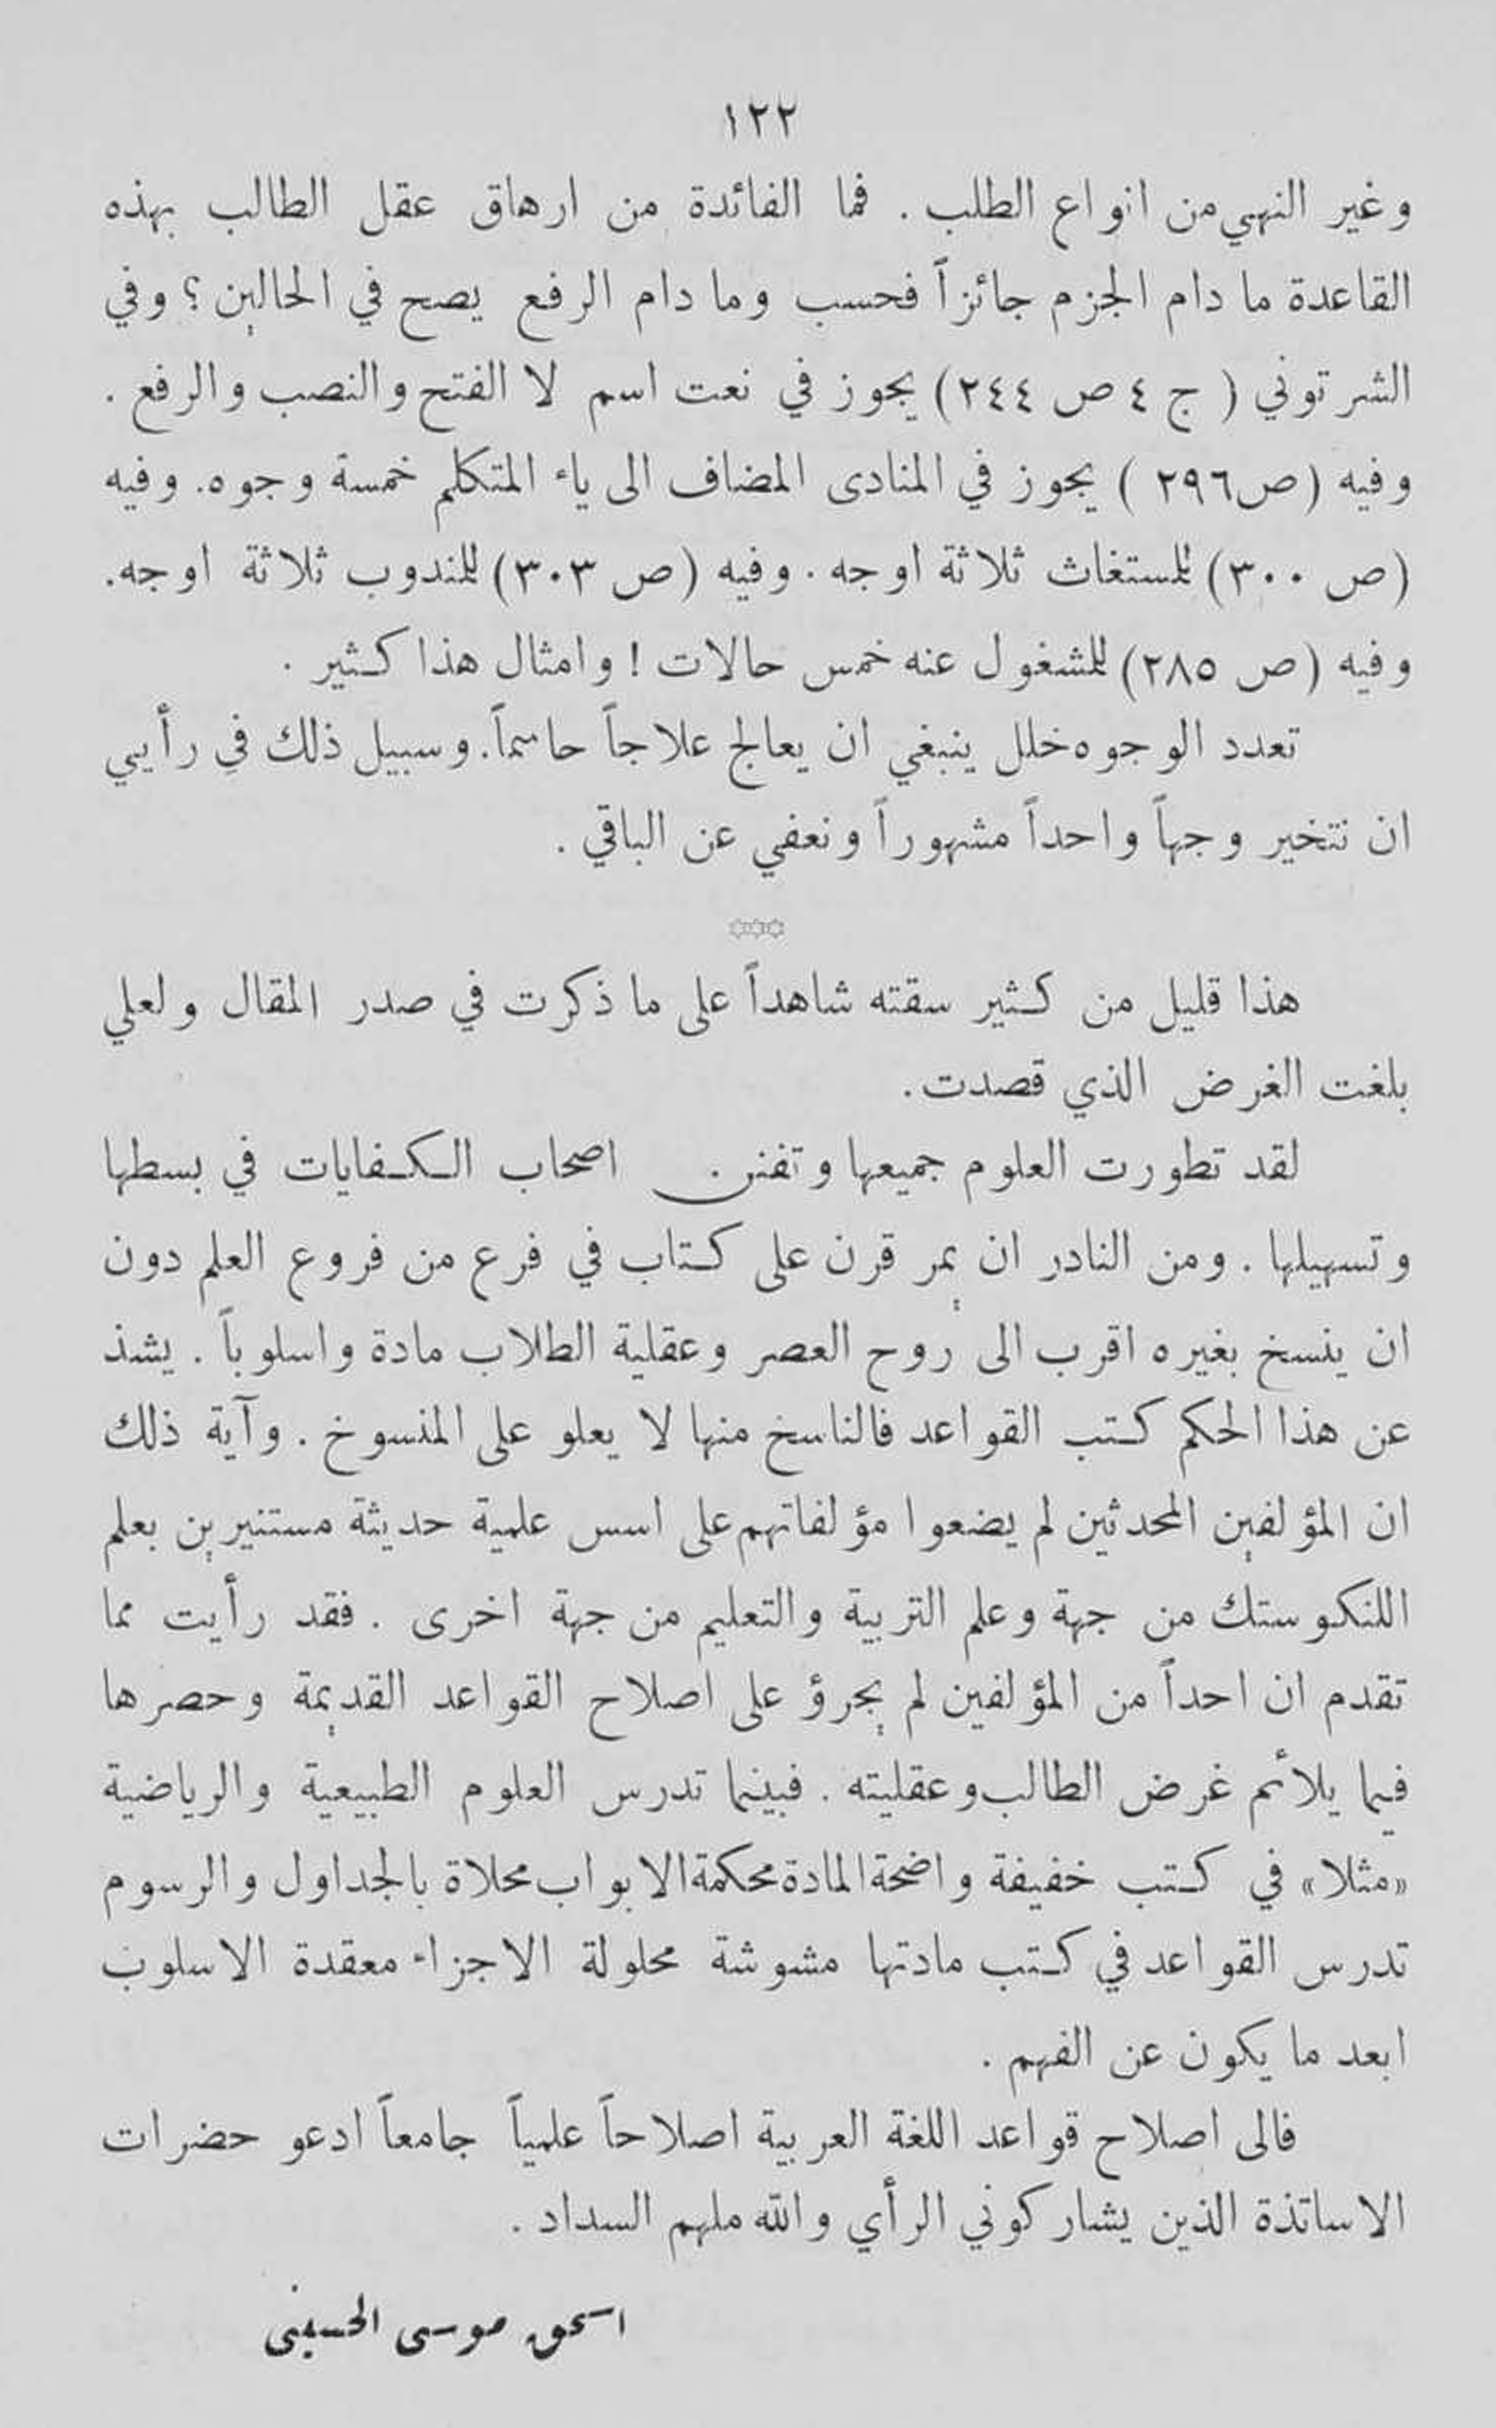 ١٢٢
وغير النهي من انواع الطلب . فما الفائدة من ارهاق عقل الطالب بهذه
القاعدة ما دام الجزم جائزاً فحسب وما دام الرفع يصح في الحالين ؟ وفي
الشرتوني ( ج ٤ ص ٢٤٤) يجوز في نعت اسم لا الفتح والنصب والرفع .
وفيه (ص٢٩٦ ) يجوز في المنادى المضاف الى ياء المتكلم خمسة وجوه. وفيه
(ص ٣٠٠) للمستغاث ثلاثة اوجه . وفيه (ص ٣٠٣) للمندوب ثلاثة اوجه.
وفيه (ص ٢٨٥) للمشغول عنه خمس حالات ! وامثال هذا كثير .
تعدد الوجوه خلل ينبغي ان يعالج علاجاً حاسماً. وسبيل ذلك في رأيي
ان نتخير وجهاً واحداً مشهوراً ونعفي عن الباقي .
***
هذا قليل من كثير سقته شاهداً على ما ذكرت في صدر المقال ولعلي
بلغت الغرض الذي قصدت.
لقد تطورت العلوم جميعها وتفنن اصحاب الكفايات في بسطها
وتسهيلها . ومن النادر ان يمر قرن على كتاب في فرع من فروع العلم دون
ان ينسخ بغيره اقرب الى روح العصر وعقلية الطلاب مادة واسلوباً . يشذ
عن هذا الحكم كتب القواعد فالناسخ منها لا يعلو على المنسوخ . وآية ذلك
ان المؤلفين المحدثين لم يضعوا مؤلفاتهم على اسس علمية حديثة مستنيرين بعلم
اللنكوستك من جهة وعلم التربية والتعليم من جهة اخرى . فقد رأيت مما
تقدم ان احداً من المؤلفين لم يجرؤ على اصلاح القواعد القديمة وحصرها
فيما يلائم غرض الطالب وعقليته . فبينما تدرس العلوم الطبيعية والرياضية
«مثلا» في كتب خفيفة واضحة المادة محكمة الابواب محلاة بالجداول والرسوم
تدرس القواعد في كتب مادتها مشوشة محلولة الاجزاء معقدة الاسلوب
ابعد ما يكون عن الفهم .
فالى اصلاح قواعد اللغة العربية اصلاحاً علمياً جامعاً ادعو حضرات
الاساتذة الذين يشاركوني الرأي والله ملهم السداد .
اسحق موسى الحسيني